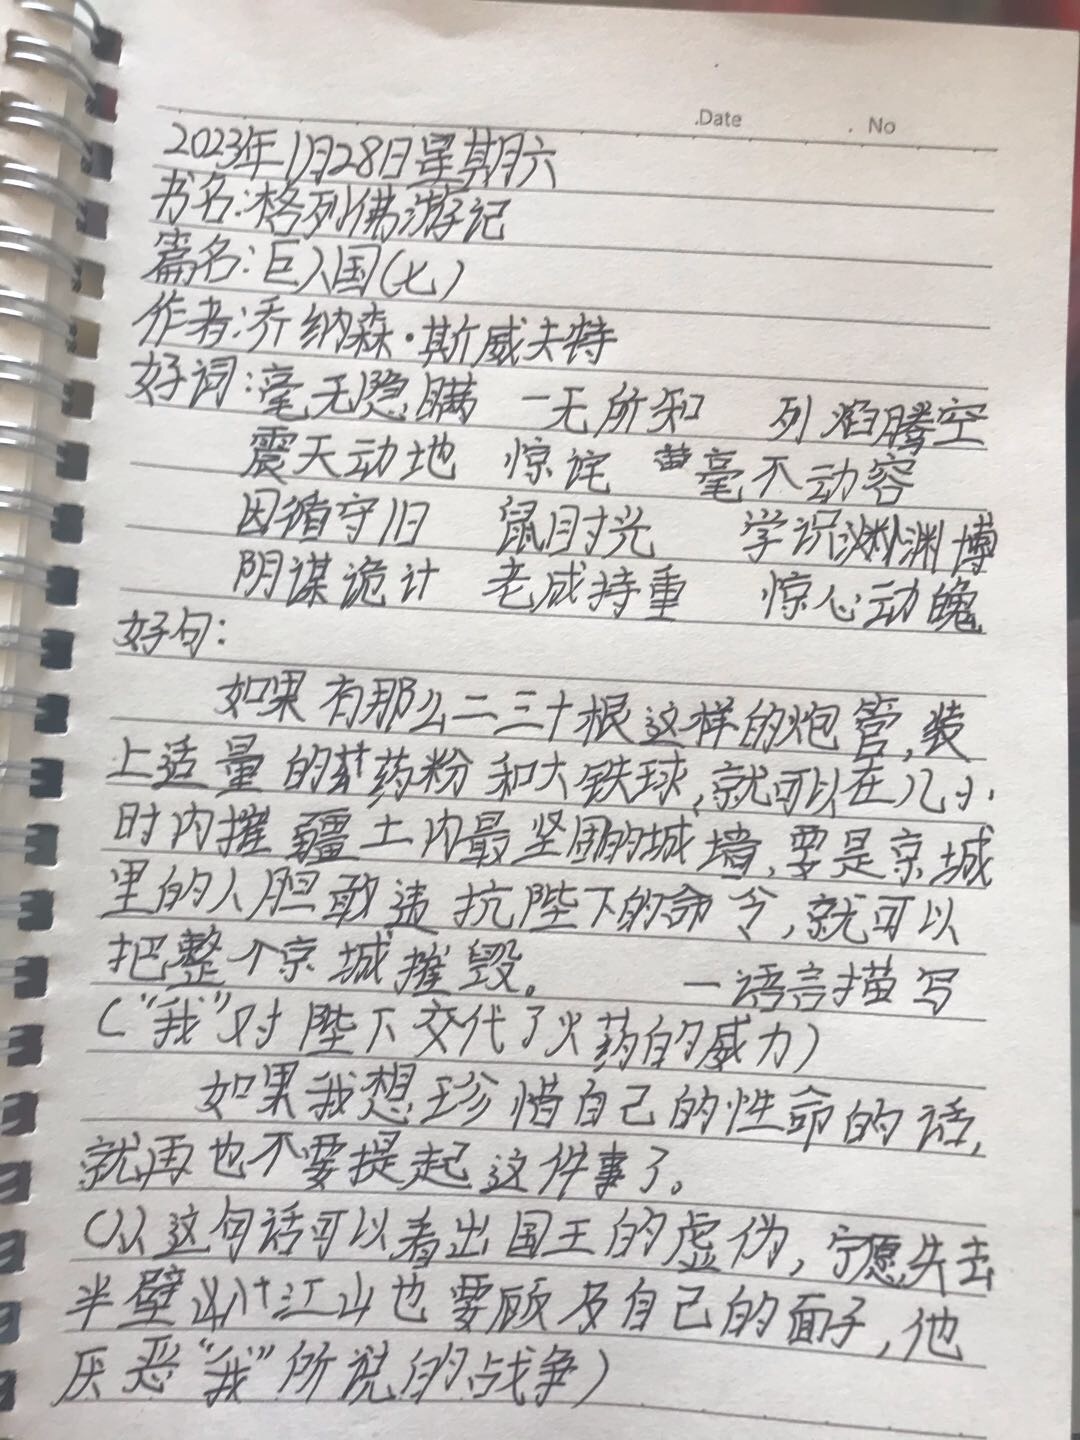 .Date . No
2023年1月28日星期六
书名:格列佛游记
篇名:巨人国(七)
作者:乔纳森·斯威夫特
好词:毫无隐瞒 一无所知 列焰腾空
震天动地 惊诧 毫不动容
因循守旧 鼠目寸光 学识渊博
阴谋诡计 老成持重 惊心动魄
好句:
如果有那么二三十根这样的炮管,装
上适量的药粉和大铁球,就可以在几小
时内摧疆土内最坚固的城墙,要是京城
里的人胆敢违抗陛下的命令,就可以
把整个京城摧毁。 —语言描写
("我"对陛下交代了火药的威力)
如果我想珍惜自己的性命的话,
就再也不要提起这件事了。
(从这句话可以看出国王的虚伪,宁愿失去
半壁江山也要顾及自己的面子,他
厌恶"我"所说的战争)